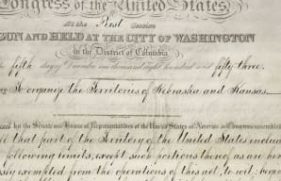 Congress of the United States
At the First Session
GUN AND HELD AT THE CITY OF WASHINGTON
in the District of Columbia
the fifth day of December one thousand eight hundred and fifty three.
To organize the Territories of Nebraska and Kansas.
by the Senate and House of Representatives of the United States of America in Congress assembled
that part of the Territory of the United States includ
following limits, except such portions thereof as are her
ssly exempted from the operations of this act, to wit: beg